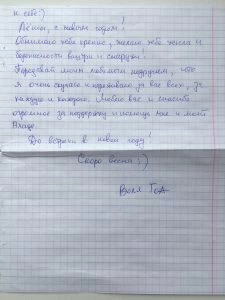 к себе:)
Лёша, с новым годом!
Обнимаю тебя крепко, желаю тебе тепла и
безопасности внутри и снаружи.
Передавай моим любимым подругам, что
я очень скучаю и переживаю за вас всех, за
каждую и каждого. Люблю вас и спасибо
огромное за поддержку и помощь мне и моей
До встречи в новом году!
Скоро весна ;)
Воля ГоА